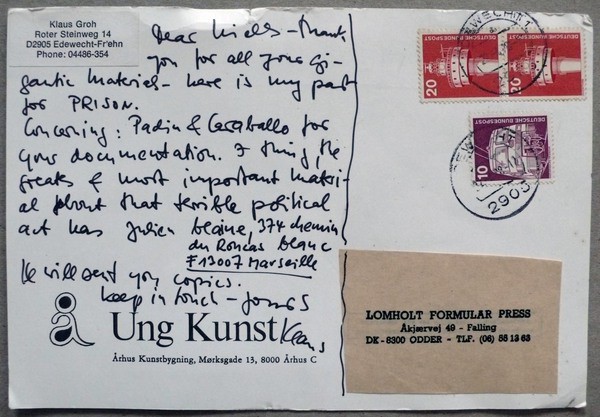 Klaus Groh
Roter Steinweg 14
D2905 Edewecht-Fr'ehn
Phone: 04486-354
Dear Niels - thank
you for all your gi-
gantic materiels - here is my part
for PRISON.
Concerning: Padin & Caraballo for
your documentation. I thing, the
greats & most important materi-
al about that terrible political
act has Julien Blaine, 374 chemin
du Roucas Blanc
F13007 Marseille
He will sent you copies.
keep in touch - yours
Klaus
å Ung Kunst
Århus Kunstbygning, Mørksgade 13, 8000 Århus C
DEUTSCHE BUNDESPOST
20
DEUTSCHE BUNDESPOST
20
DEUTSCHE BUNDESPOST
10
2905
LOMHOLT FORMULAR PRESS
Åkjærvej 49 - Falling
DK-8300 ODDER - TLF. (06) 55 13 63